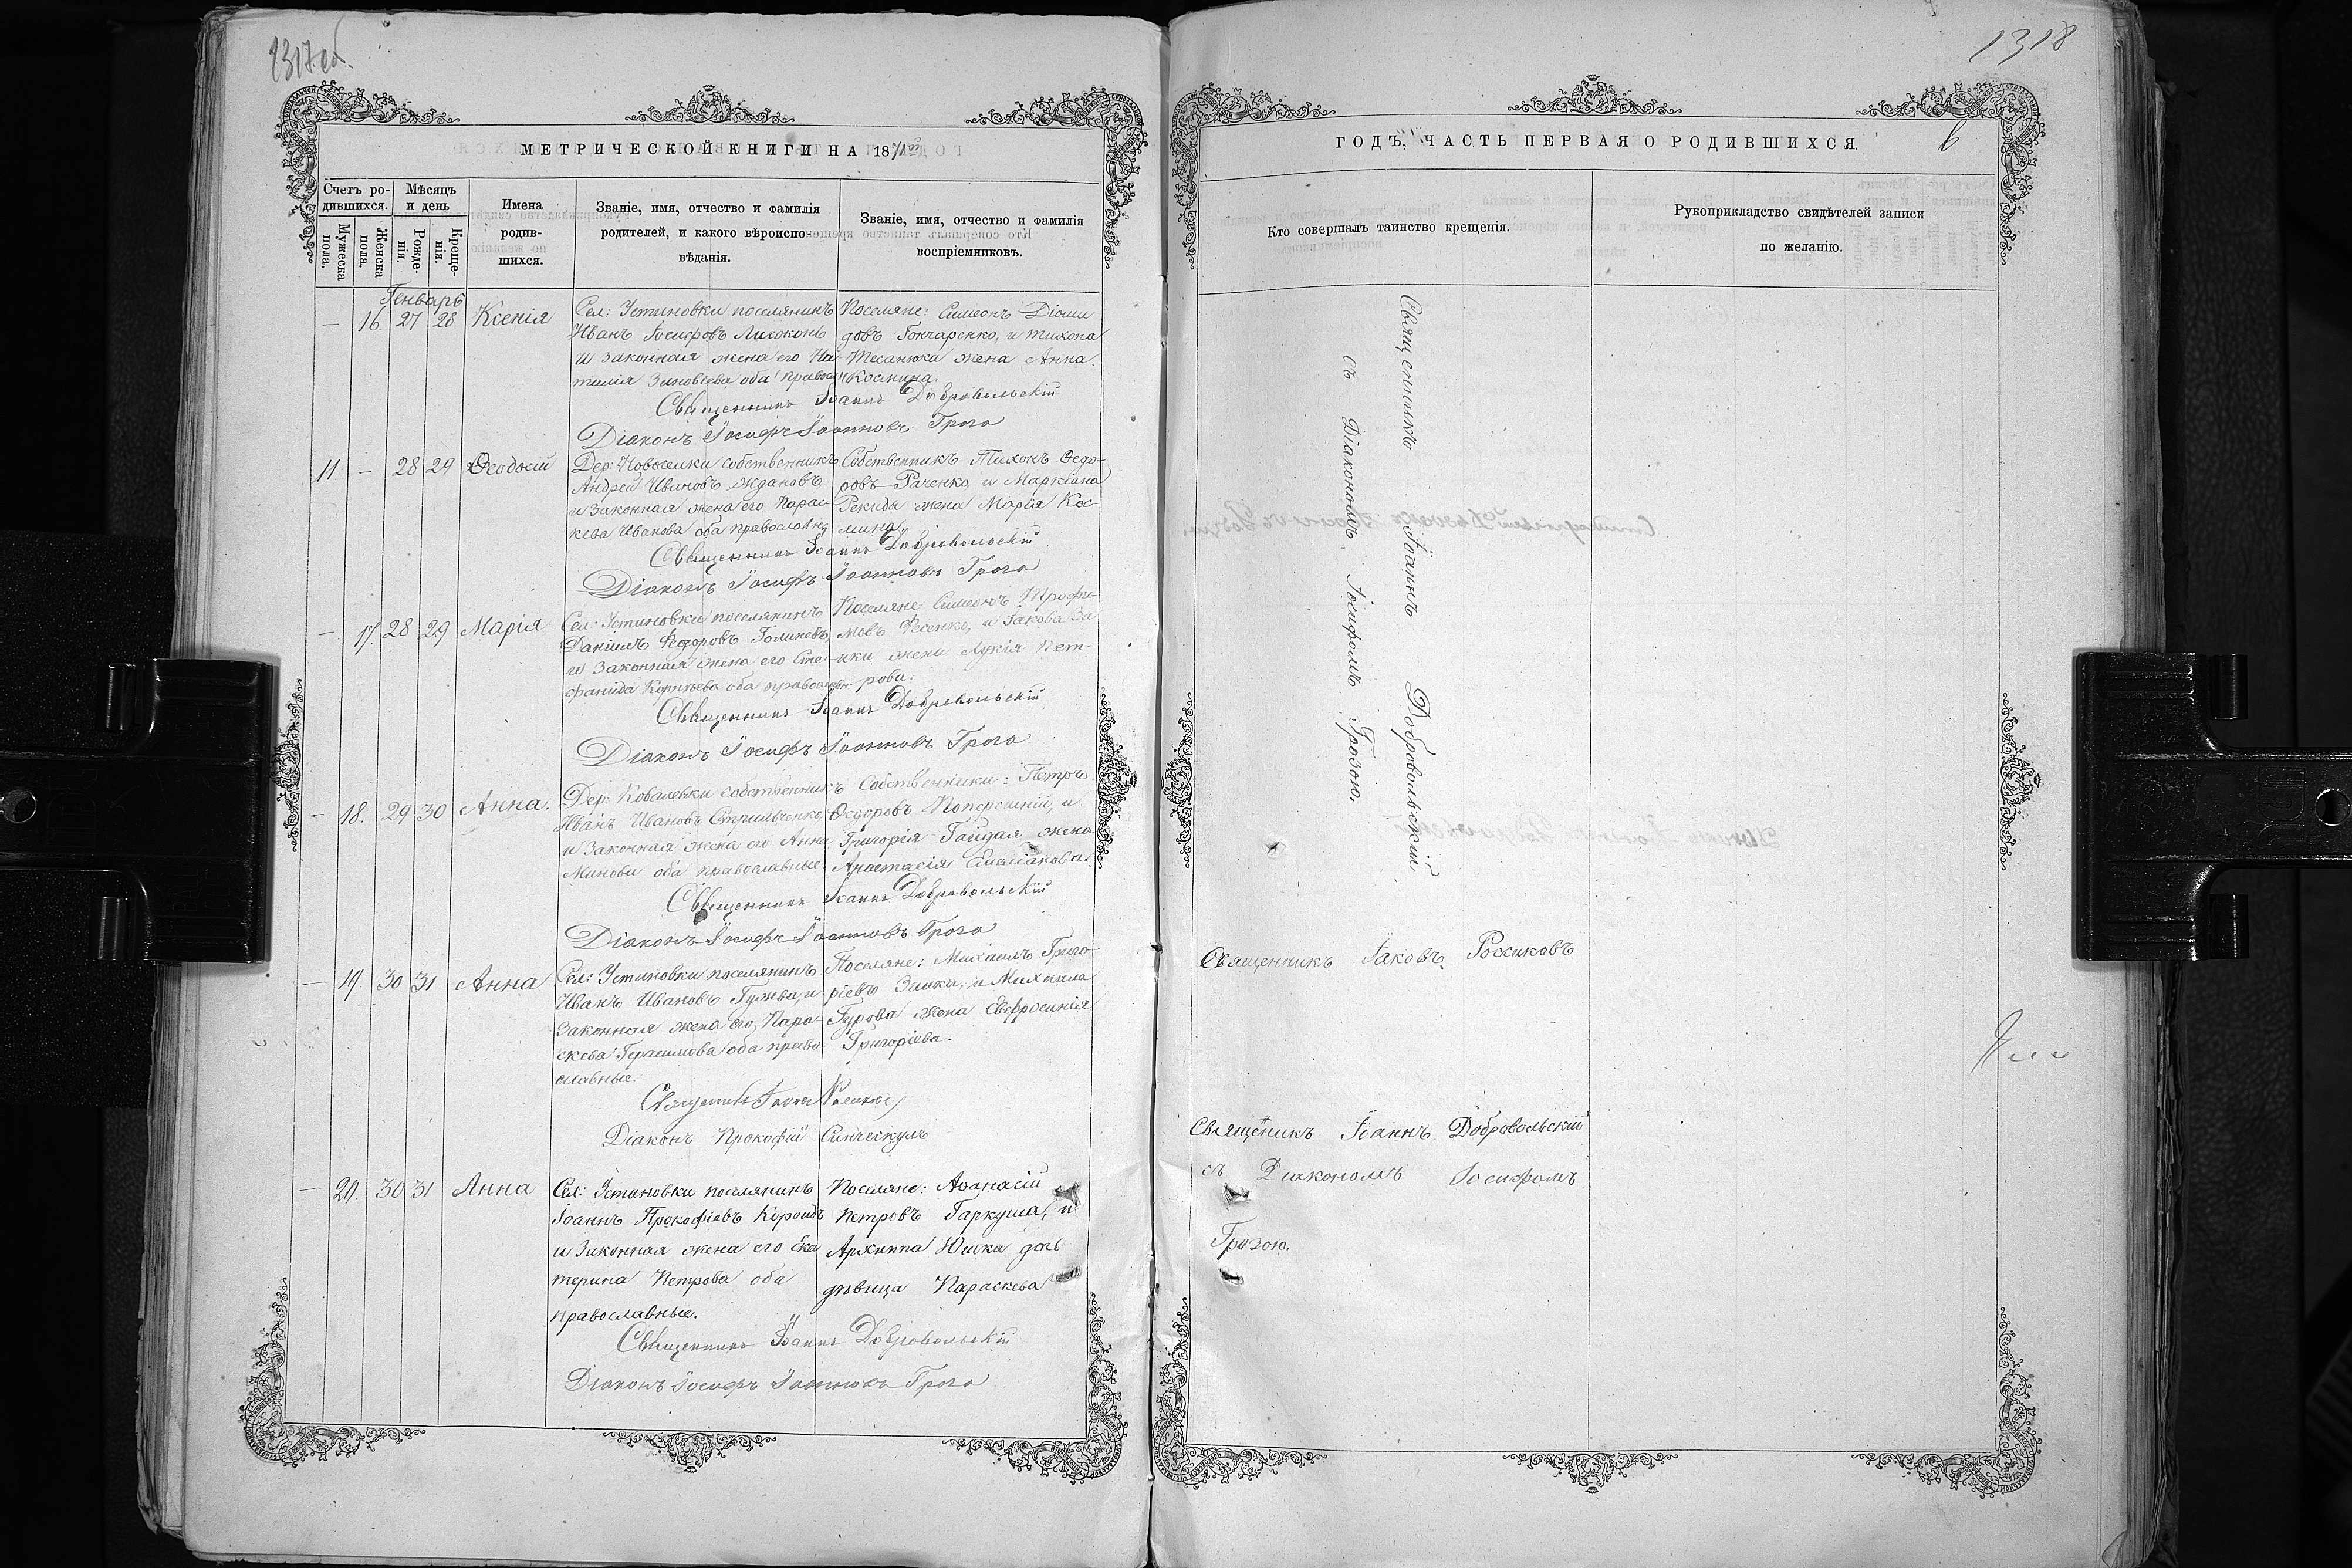 1317 об.
МЕТРИЧЕСКОЙ КНИГИ НА 1871й
Счетъ ро-
дившихся.
Мѣсяцъ
и день
Мужеска
пола.
Женска
пола.
Рожде-
нія.
Креще-
нія.
Имена
родив-
шихся.
Званіе, имя, отчество и фамилія
родителей, и какого вѣроиспо-
вѣданія.
Званіе, имя, отчество и фамилія
воспріемниковъ.
Генварь
— 16. 27 28 Ксенія
Сел: Устиновки поселянинъ
Иванъ
и законная жена его На-
талія Зиновіева оба православ
Поселяне: Симеонъ Діоми
довъ Гончаренко, и Тихона
жена Анна
Космина.
Священникъ Іоаннъ Добровольскій
Діаконъ Іосифъ Іоанновъ Гроза
11. — 28 29 Ѳеодосій
Дер: Новоселки собственникъ
Андрей Ивановъ Ждановъ
и законная жена его Парас-
кева Иванова оба православны
Собственникъ Тихонъ Ѳедо-
ровъ Раченко и Маркіана
Рекиды жена Марія Кос-
мина.
Священникъ Іоаннъ Добровольскій
Діаконъ Іосифъ Іоанновъ Гроза
— 17. 28 29 Марія
Сел: Устиновки поселянинъ
Даніилъ Ѳедоровъ
и законная жена его Сте-
фанида Корніева оба православн:
Поселяне Симеонъ Трофи-
мовъ Фесенко, и Іакова За
ики жена Лукія Пет-
рова.
Священникъ Іоаннъ Добровольскій
Діаконъ Іосифъ Іоанновъ Гроза
— 18. 29 30 Анна.
Дер: Ковалевки собственникъ
Иванъ Ивановъ Стрильченко
и законная жена его Анна
Минова оба православные.
Собственники: Петръ
Ѳедоровъ и
Григорія Гайдая жена
Анастасія Емеліанова.
Священникъ Іоаннъ Добровольскій
Діаконъ Іосифъ Іоанновъ Гроза
— 19. 30 31 Анна
Сел: Устиновки поселянинъ
Иванъ Ивановъ Гужва, и
законная жена его, Пара
скева Герасимова оба право
славные.
Поселяне: Михаилъ Григо-
ріевъ Заика, и Михаила
Гурова жена Евфросинія
Григоріева.
Священникъ Іаковъ Россиковъ
Діаконъ Прокофій
— 20. 30 31 Анна
Сел: Устиновки поселянинъ
Іоаннъ Прокофіевъ
и законная жена его Ека
терина Петрова оба
православные.
Поселяне: Аѳанасій
Петровъ Гаркуша, и
Архиппа Юшки дочь
дѣвица Параскева
Священникъ Іоаннъ Добровольскій
Діаконъ Іосифъ Іоанновъ Гроза
1318
ГОДЪ, ЧАСТЬ ПЕРВАЯ О РОДИВШИХСЯ.
6
Кто совершалъ таинство крещенія.
Рукоприкладство свидѣтелей записи
по желанію.
Священникъ Іоаннъ Добровольскій
съ Діакономъ Іосифомъ Грозою.
Священникъ Іаковъ Россиковъ
Священикъ Іоаннъ Добровольскій
съ Діакономъ Іосифомъ
Грозою.